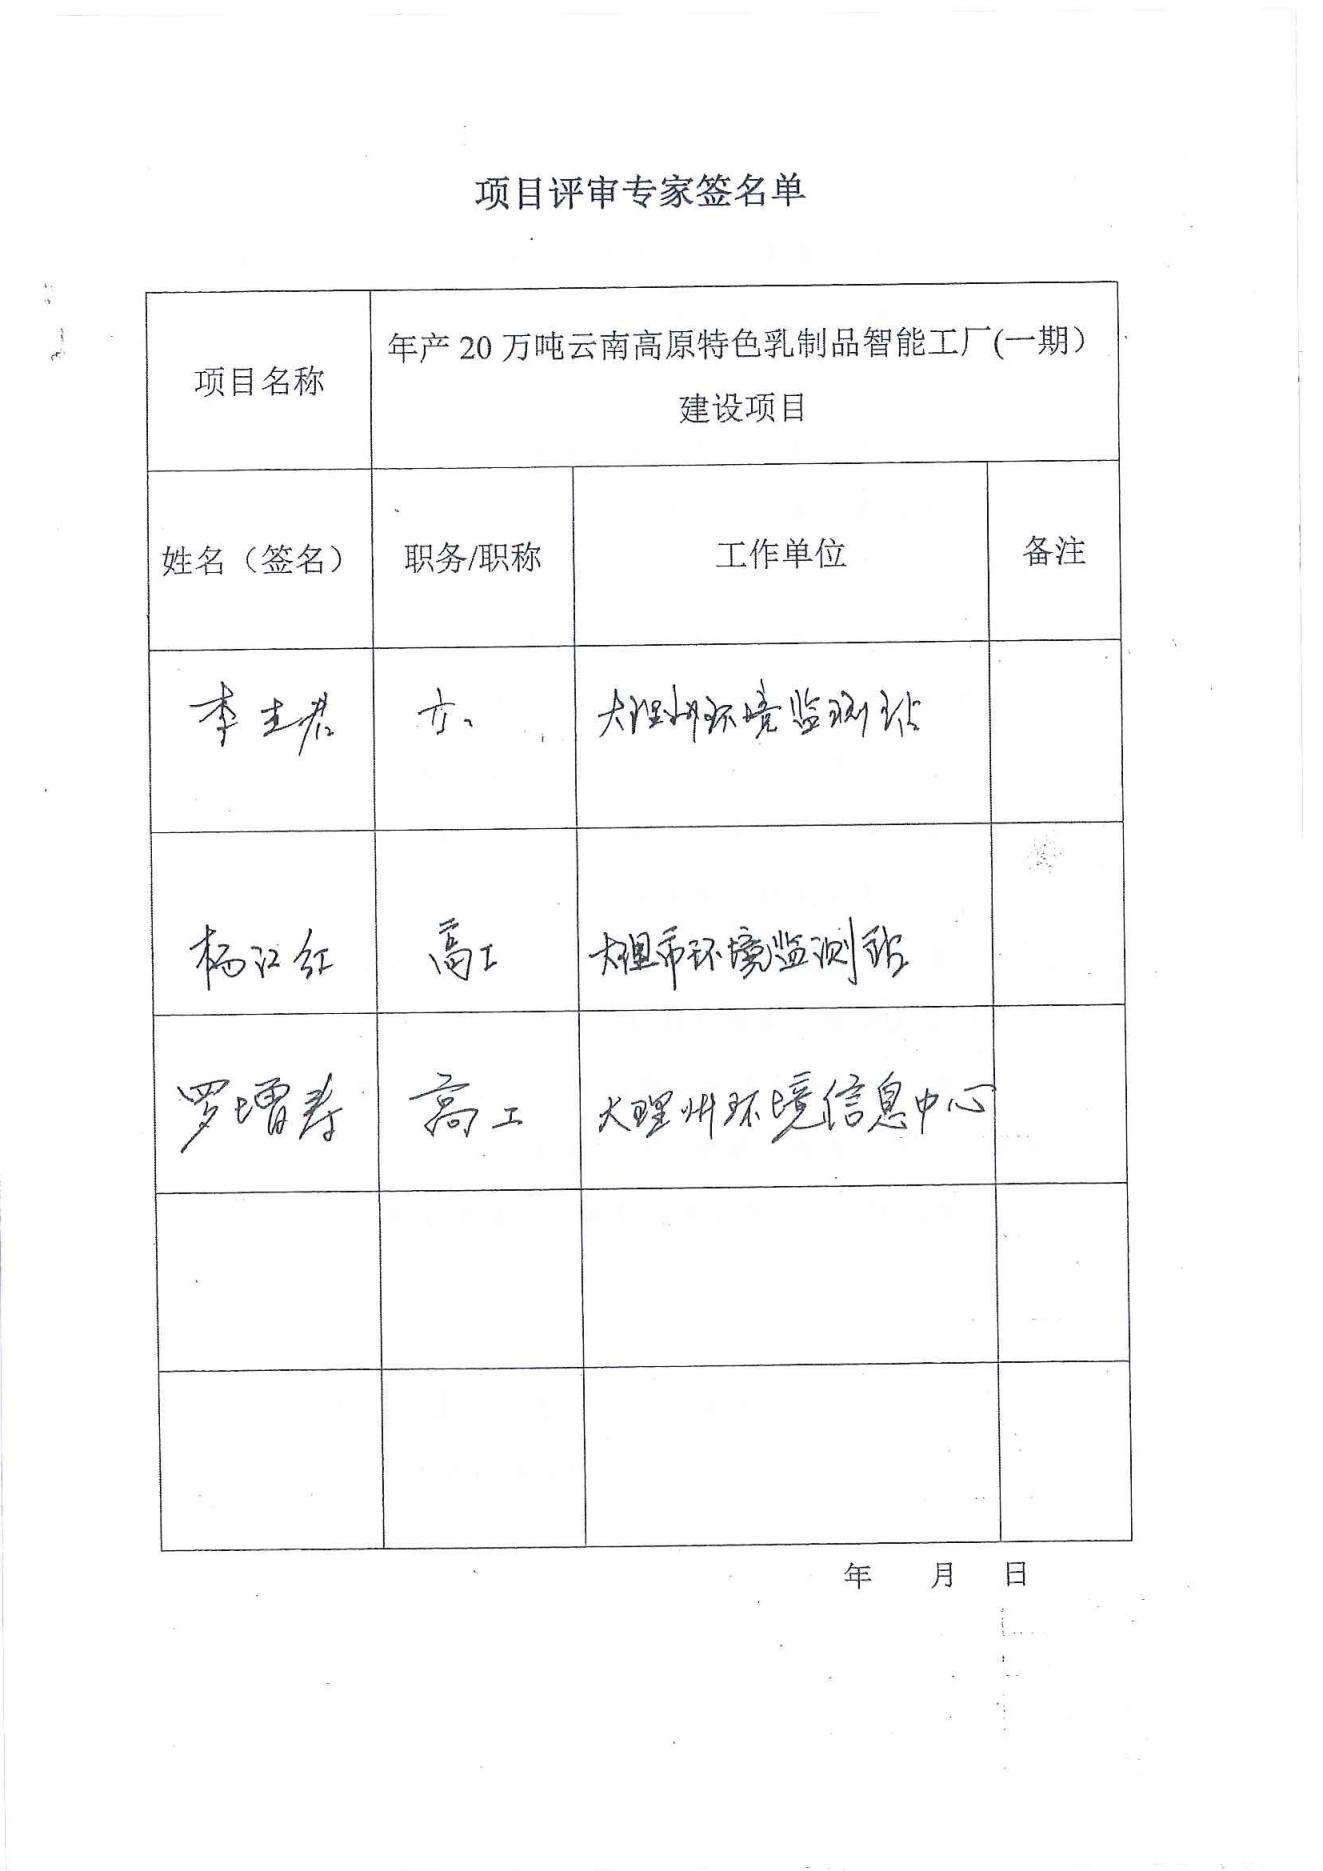 项目评审专家签名单
项目名称
年产20万吨云南高原特色乳制品智能工厂(一期）
建设项目
姓名（签名） 职务/职称 工作单位 备注
李 君 大理州环境监测站
杨江红 高工 大理市环境监测站
罗增寿 高工 大理州环境信息中心
年 月 日